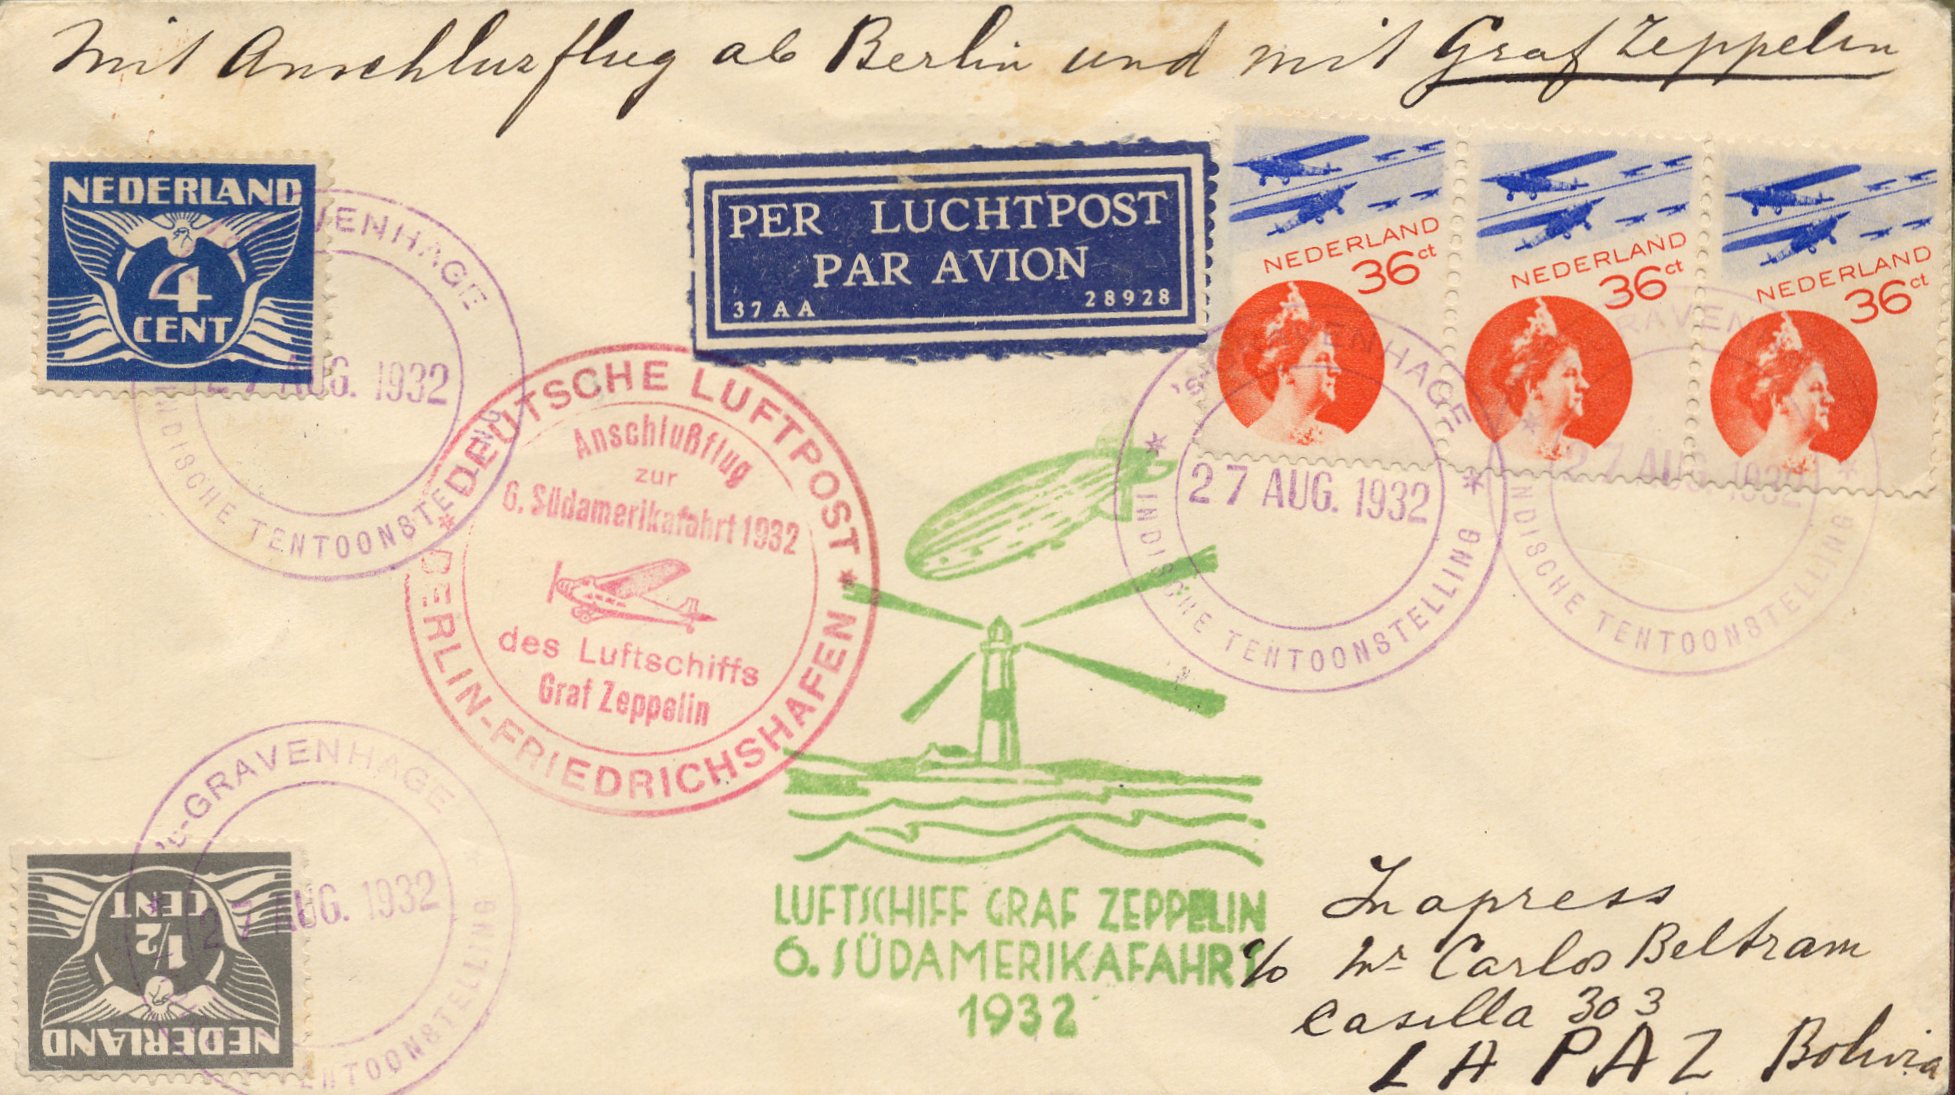 Mit Anschlussflug ab Berlin und mit Graf Zeppelin
NEDERLAND
4
CENT
'S-GRAVENHAGE
27 AUG. 1932
INDISCHE TENTOONSTELLING
PER LUCHTPOST
PAR AVION
37AA 28928
NEDERLAND
36 ct
NEDERLAND
36 ct
NEDERLAND
36 ct
'S-GRAVENHAGE
27 AUG. 1932
INDISCHE TENTOONSTELLING
'S-GRAVENHAGE
27 AUG. 1932
INDISCHE TENTOONSTELLING
DEUTSCHE LUFTPOST
Anschlußflug
zur
6. Südamerikafahrt 1932
des Luftschiffs
Graf Zeppelin
BERLIN-FRIEDRICHSHAFEN
LUFTSCHIFF GRAF ZEPPELIN
6. SÜDAMERIKAFAHRT
1932
'S-GRAVENHAGE
27 AUG. 1932
TENTOONSTELLING
NEDERLAND
1/2
CENT
Inapress
c/o Mr Carlos Beltram
Casilla 303
LA PAZ Bolivia